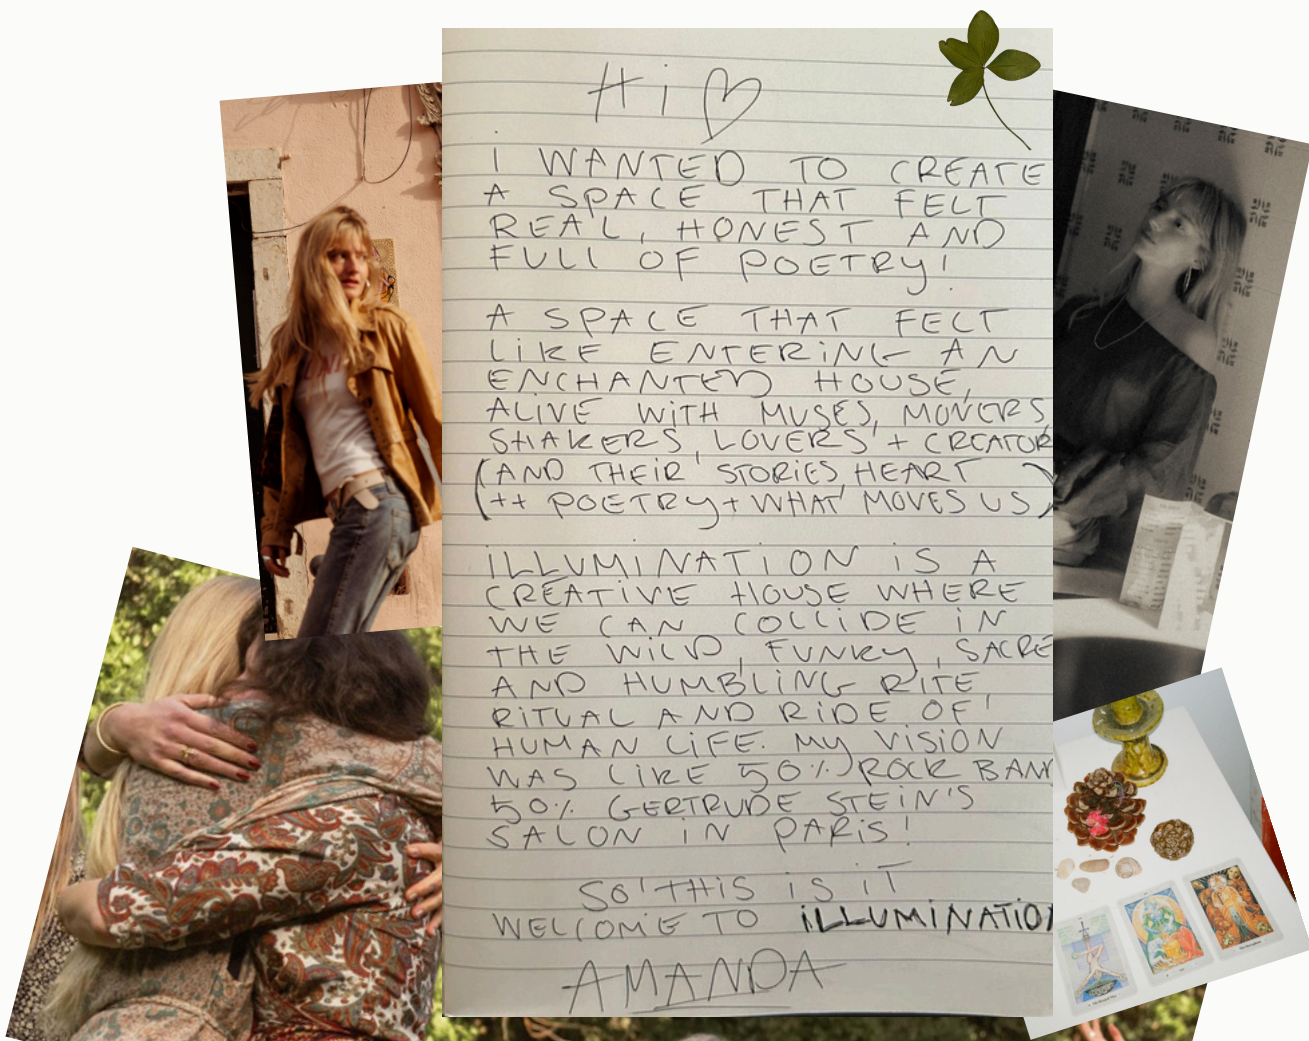 Hi ♡
I WANTED TO CREATE
A SPACE THAT FELT
REAL, HONEST AND
FULL OF POETRY!
A SPACE THAT FELT
LIKE ENTERING AN
ENCHANTED HOUSE,
ALIVE WITH MUSES, MOVERS,
SHAKERS, LOVERS + CREATOR
(AND THEIR STORIES, HEART
++ POETRY + WHAT MOVES US)
ILLUMINATION IS A
CREATIVE HOUSE WHERE
WE CAN COLLIDE IN
THE WILD, FUNKY, SACRE
AND HUMBLING RITE,
RITUAL AND RIDE OF
HUMAN LIFE. MY VISION
WAS LIKE 50% ROCK BAN
50% GERTRUDE STEIN'S
SALON IN PARIS!
SO THIS IS IT
WELCOME TO ILLUMINATION
AMANDA